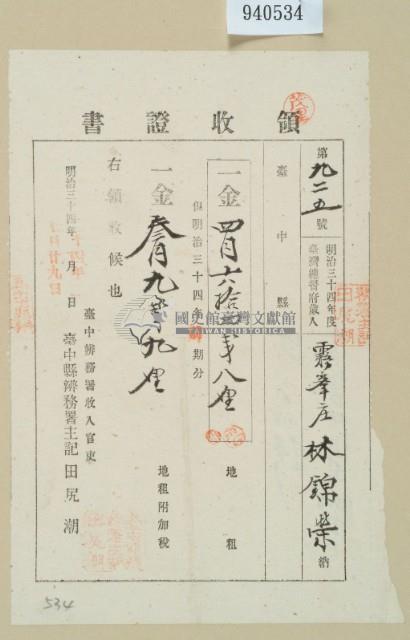 940534
領收證書
第九二五號
明治三十四年度
臺灣總督府歲入
霧峯庄 林錦榮 納
臺中縣
一金 四円六拾四錢八厘 地租
但明治三十四年 期分
一金 九錢九厘 地租附加稅
右領收候也
明治三十四年 月 日
臺中辨務署收入官吏
臺中縣辨務署主記 田尻潮
國史館臺灣文獻館
TAIWAN HISTORICA
534